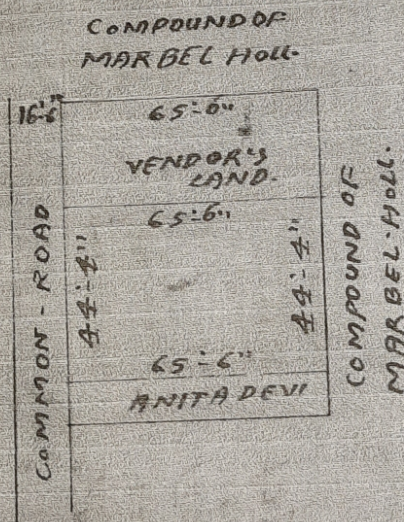 COMPOUND OF
MARBEL HOLL.
16'-6"
65'-6"
VENDOR'S
LAND.
65'-6"
COMMON - ROAD
44'-4"
44'-4"
COMPOUND OF
MARBEL-HOLL.
65'-6"
ANITA DEVI